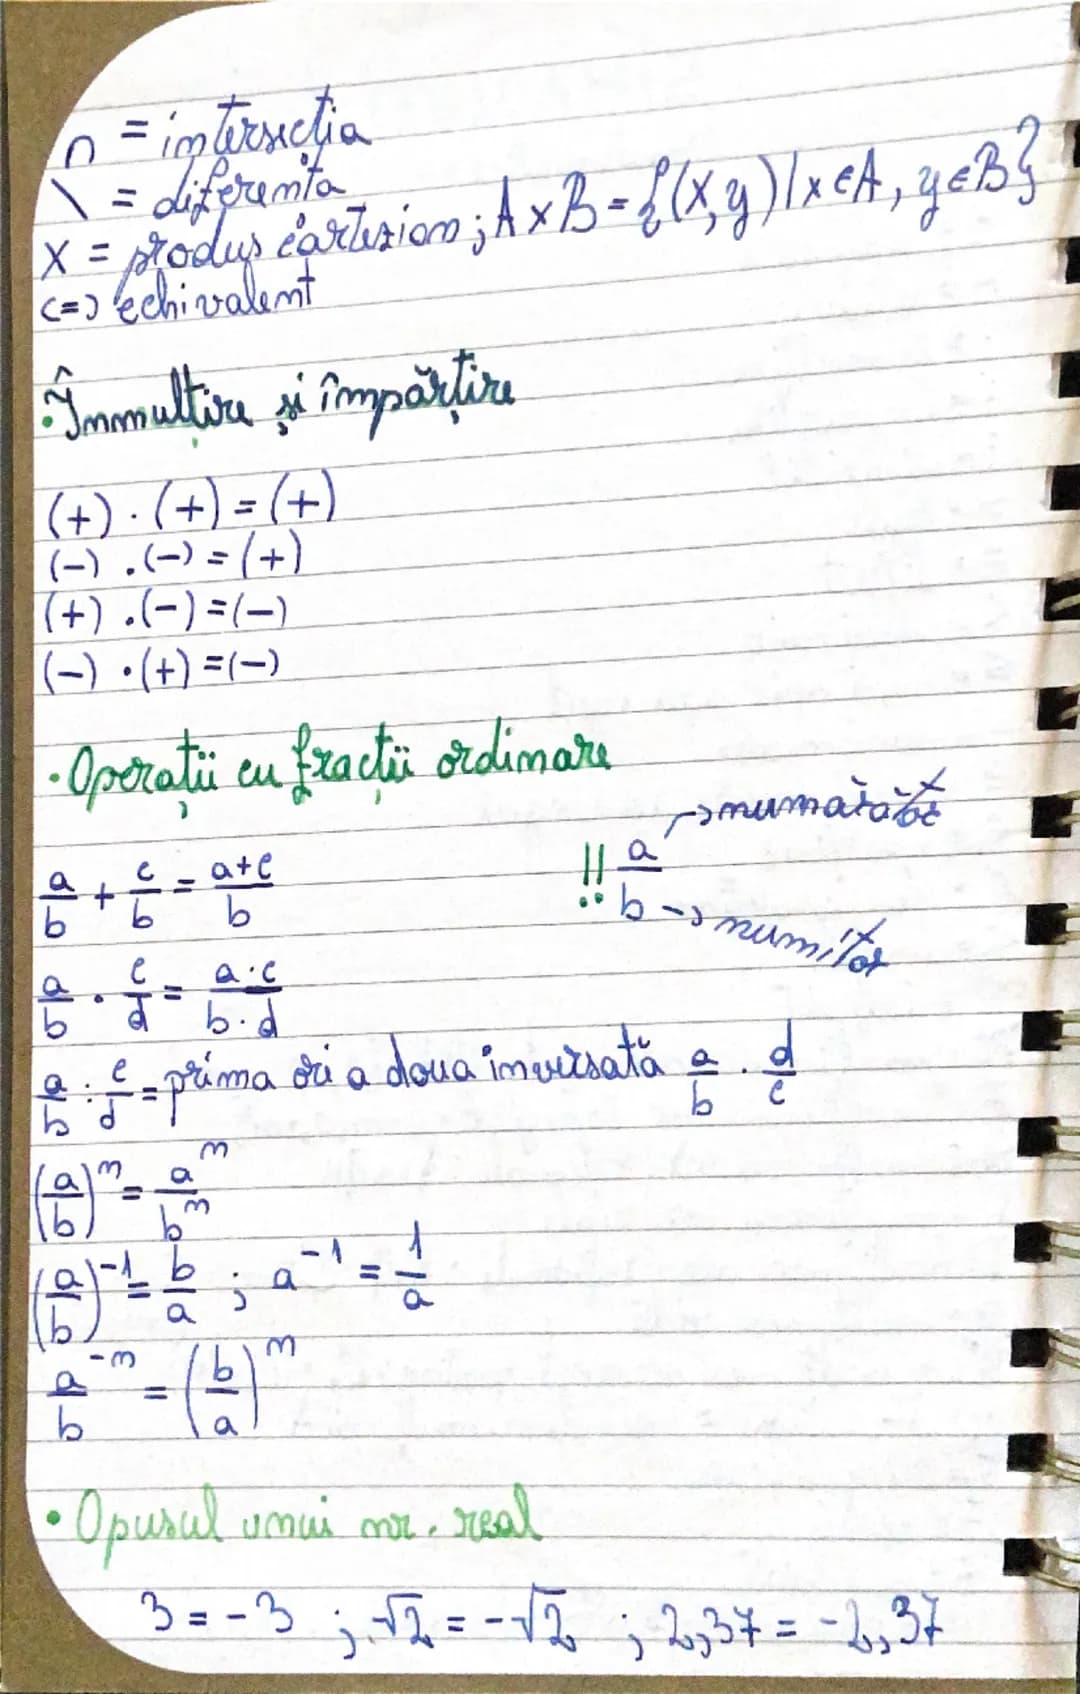 ∩ = intersecția
\ = diferența
X = produs cartezian ; A x B = {(x,y) / x ∈ A, y ∈ B}
<=> echivalent
• Înmulțire și împărțire
(+) · (+) = (+)
(-) · (-) = (+)
(+) · (-) = (-)
(-) · (+) = (-)
• Operații cu fracții ordinare
a/b + c/b = (a+c)/b
!! a/b
a → numărător
b → numitor
a/b · c/d = (a·c)/(b·d)
a/b : c/d = prima ori a doua inversată a/b · d/c
(a/b)^n = a^n/b^n
(a/b)^-1 = b/a ; a^-1 = 1/a
a/b^-n = (b/a)^n
• Opusul unui nr. real
3 = -3 ; √2 = -√2 ; 2,37 = -2,37